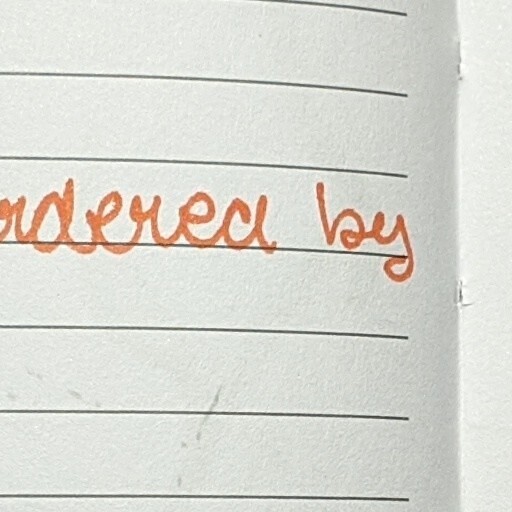 ordered by